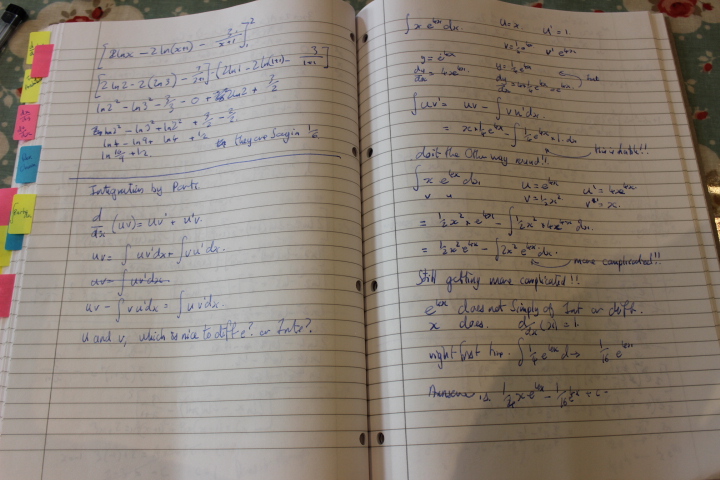 [2lnx - 2ln(x+1) - 3/x+1]²₁
[2ln2 - 2(ln3) - 3/2+1] - (2ln1 - 2ln(1+1) - 3/1+1]
ln2² - ln3² - 3/3 - 0 + 2ln2 + 3/2
ln2² - ln3² + ln2²
ln4 - ln9 + ln4 + 1/2 they are saying 1/2
ln 16/9 + 1/2
Integration by Parts
d/dx (uv) = uv' + u'v
uv = ∫ uv'dx + ∫ vu'dx.
uv = ∫ uv'dx
uv - ∫ vu'dx = ∫ uv'dx.
u and v, which is nice to diff e? or Inte?
∫ x e⁴ˣ dx. u = x. u' = 1.
v = 1/4 e⁴ˣ v' e⁴ˣ
y = e⁴ˣ y = 1/4 e⁴ˣ
dy/dx = 4e⁴ˣ
∫ uv' = uv - ∫ vu'dx
= x × 1/4 e⁴ˣ - ∫ 1/4 e⁴ˣ × 1 dx
do it the Other way round!!
∫ x e⁴ˣ dx u = e⁴ˣ u' = 4e⁴ˣ
v u v = 1/2 x² v' = x.
= 1/2 x² × e⁴ˣ - ∫ 1/2 x² × 4e⁴ˣ dx.
= 1/2 x² e⁴ˣ - ∫ 2x² e⁴ˣ dx.
more complicated!!
Still getting more complicated!!
e⁴ˣ does not simply of Int or diff.
x does. d/dx (x) = 1.
right first time. ∫ 1/4 e⁴ˣ d → 1/16 e⁴ˣ
is 1/4 x e⁴ˣ - 1/16 e⁴ˣ + c